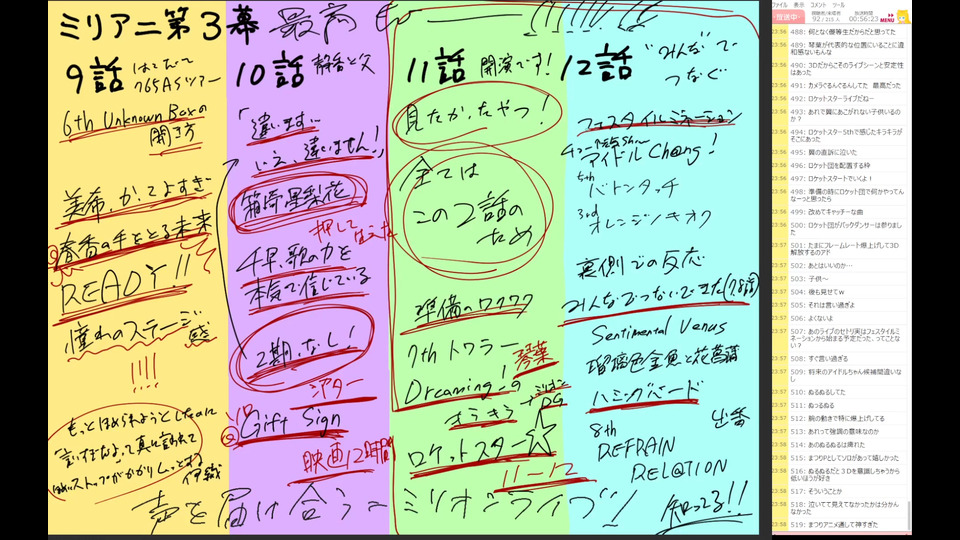 ミリアニ第3幕 最高
9話 はじめて 765ASツアー
6th Unknown Boxの
開き方
美希、かてよすぎ
春香の手をとる未来
READY!!
憧れのステージ感
!!!!
10話 静香と父
「違います
いえ、違いません!」
箱崎星梨花
千早、歌の力を
本気で信じている
2期、なし!
シアター
Gift Sign
映画12時間
11話 開演です!
見たかったやつ!
全ては
この2話の
ため
準備のワクワク
7th トワラー
琴葉
Dreaming!
きらきら
ロケットスター☆
11-12
12話 "みんな"で
つなぐ
フェスタ・イルミネーション
アイドルCh@ng!
5th
バトンタッチ
3rd
オレンジノキオク
裏側での反応
みんなでつないできた
Sentimental Venus
瑠璃色金魚と花菖蒲
ハミングバード
8th
REFRAIN
REL@TION
声を届け合う ミリオンライブ!
知ってる!!
ファイル 表示 コメント ツール
放送中
92 / 215 人
00:56:23
MENU
23:56 488: 何となく優等生だからだと思ってた
23:56 489: 琴葉が代表的な位置にいることに違和感ないもんな
23:56 490: 3Dだからこそのライブシーンと安定性はあった
23:56 491: カメラぐるんぐるんしてた 最高だった
23:56 492: ロケットスターライブだねー
23:56 493: あれで翼にあこがれない子供いるのか?
23:56 494: ロケットスター5thで感じたキラキラがそこにあった
23:56 495: 翼の直訴に泣いた
23:56 496: ロケット団を配置する枠
23:56 497: ロケットスタートでいくよ!
23:56 498: 準備の時にロケット団で何かやってんなーっと思ったら
23:56 499: 改めてキャッチーな曲
23:56 500: ロケット団がバックダンサーは参りました
23:57 501: たまにフレームレート爆上げして3D解放するのアド
23:57 502: あとはいいのか…
23:57 503: 子供〜
23:57 504: 後も見せてw
23:57 505: それは言い過ぎよ
23:57 506: よくないよ
23:57 507: あのライブのセトリ実はフェスタイルミネーションから始まる予定だった、ってことない?
23:57 508: すぐ言い過ぎる
23:57 509: 将来のアイドルちゃん候補間違いなし
23:57 510: ぬるぬるしてた
23:57 511: ぬっるぬる
23:57 512: 腕の動きで特に爆上げしてる
23:57 513: あれって強調の意味なのか
23:57 514: あのぬるぬるは痺れた
23:57 515: まつりPとしてソロがあって嬉しかった
23:57 516: ぬるぬるだと3Dを意識しちゃうから低いほうが好き
23:57 517: そういうことか
23:57 518: 泣いてて見えてなかったかは分かんなかった
23:57 519: まつりアニメ通して神すぎた